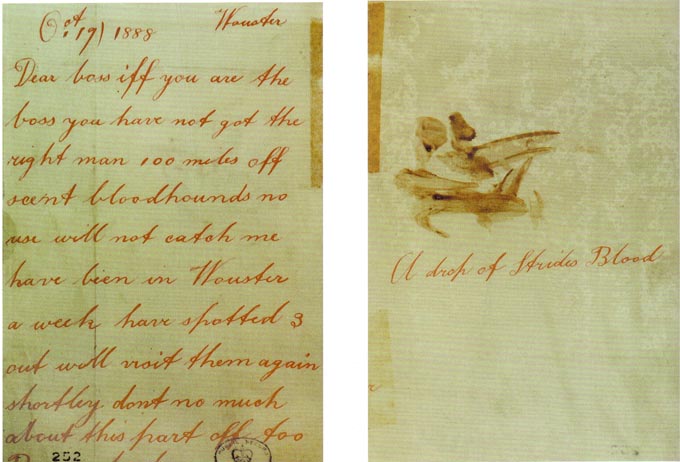 Oct 19) 1888 Wouster
Dear boss iff you are the
boss you have not got the
right man 100 miles off
scent bloodhounds no
use will not catch me
have been in Wouster
a week have spotted 3
out will visit them again
shortley dont no much
about this part off too
252
A drop of Strides Blood